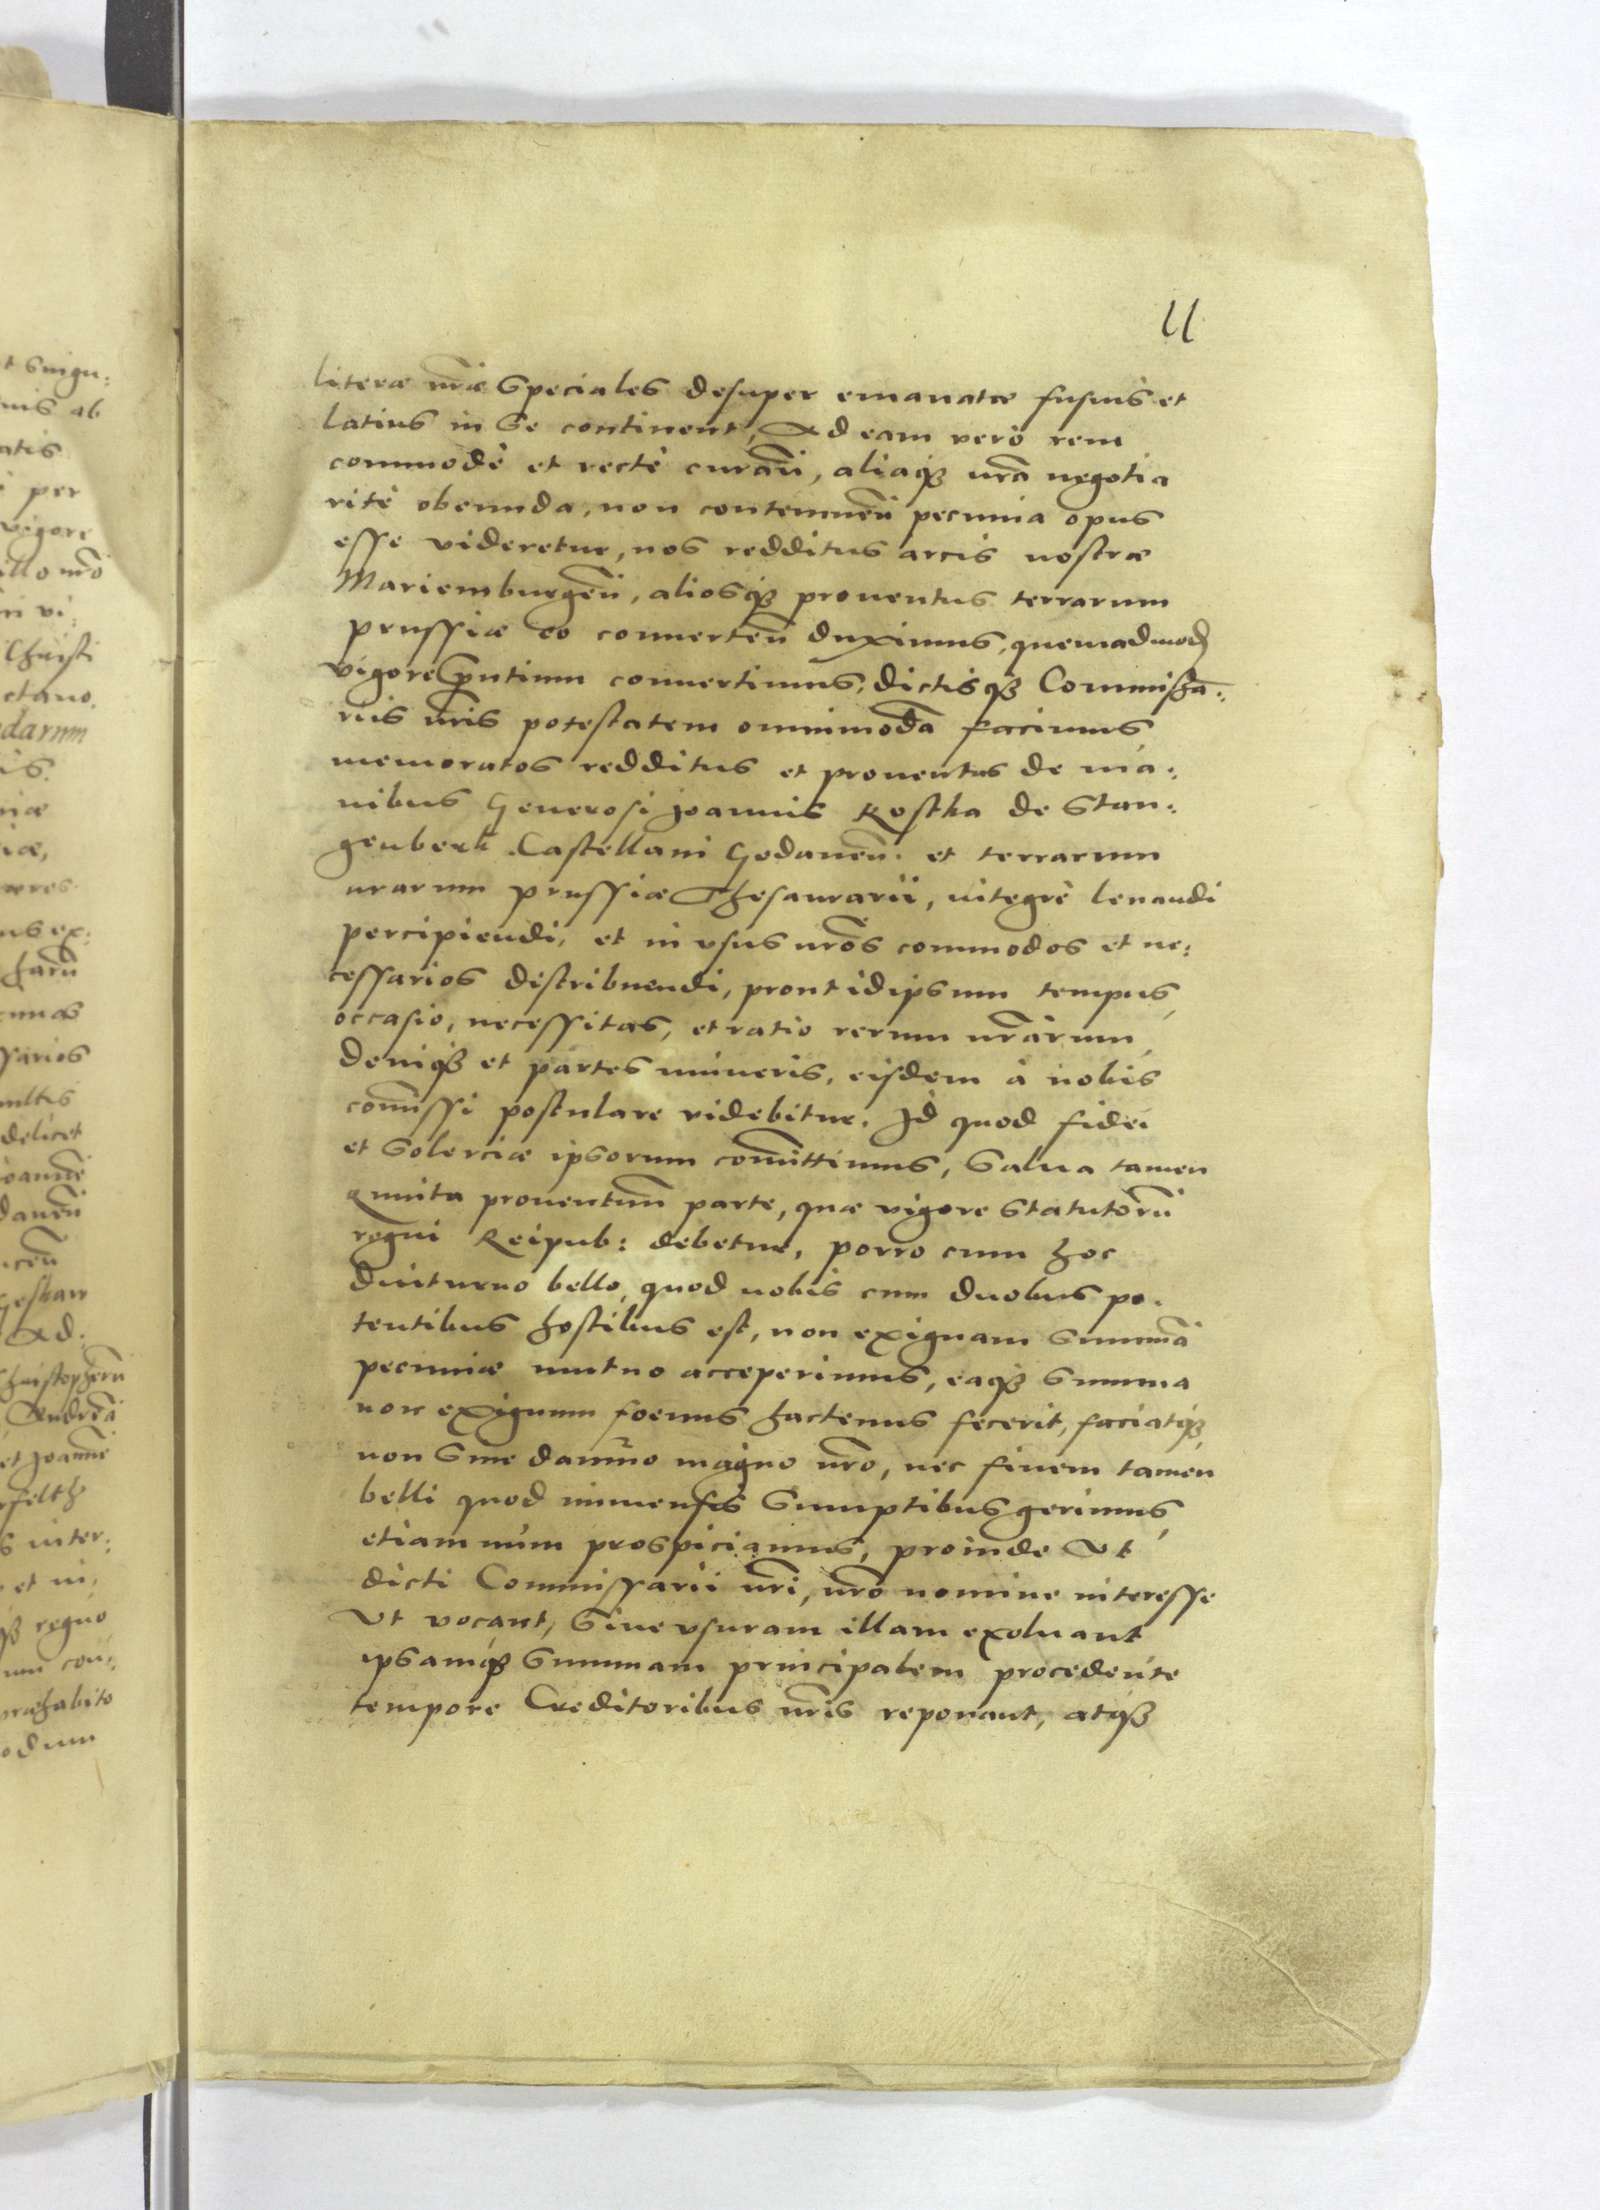 11
literæ nr̃æ Speciales desuper emanatæ fusius et
latius in se continent, Ad eam verò rem
commodè et rectè curañ, aliaqꝫ nr̃a negotia
ritè obeunda, non contemneñ pecunia opus
esse videretur, nos redditus arcis nostræ
Mariemburgeñ, aliosqꝫ prouentus terrarum
prussiæ eo conuerteñ duximus, quemadmod
vigore pñtium conuertimus, dictisqꝫ Commißa:
riis nr̃is potestatem omnimodã facimus
memoratos redditus et prouentus de ma:
nibus Generosi Joannis Kostka de Stan:
genberk Castellani Gedaneñ. et terrarum
nrarum prussiæ Thesaurarii, integrè leuandi
percipiendi, et in vsus nr̃os commodos et ne:
cessarios distribuendi, prout idipsum tempus,
occasio, necessitas, et ratio rerum nr̃arum,
deniqꝫ et partes muneris, eisdem à nobis
com̃issi postulare videbitur. Id quod fidei
et Solerciæ ipsorum com̃ittimus, Salua tamen
Quinta prouentuũ parte, quæ vigore Statutorũ
regni Reipub: debetur, porro cum hoc
diuturno bello, quod nobis cum duobus po:
tentibus hostibus est, non exiguam Summã
pecuniæ mutuo acceperimus, eaqꝫ Summa
non exiguum foenus hactenus fecerit, faciatqꝫ,
non Sine damno magno nr̃o, nec finem tamen
belli quod immensis Sumptibus gerimus,
etiam num prospiciamus, proinde Vt
dicti Commissarii nr̃i, nr̃o nomine interesse
Vt vocant, Siue vsuram illam exoluant
ipsamqꝫ Summam principalem procedente
tempore Creditoribus nr̃is reponant, atqꝫ